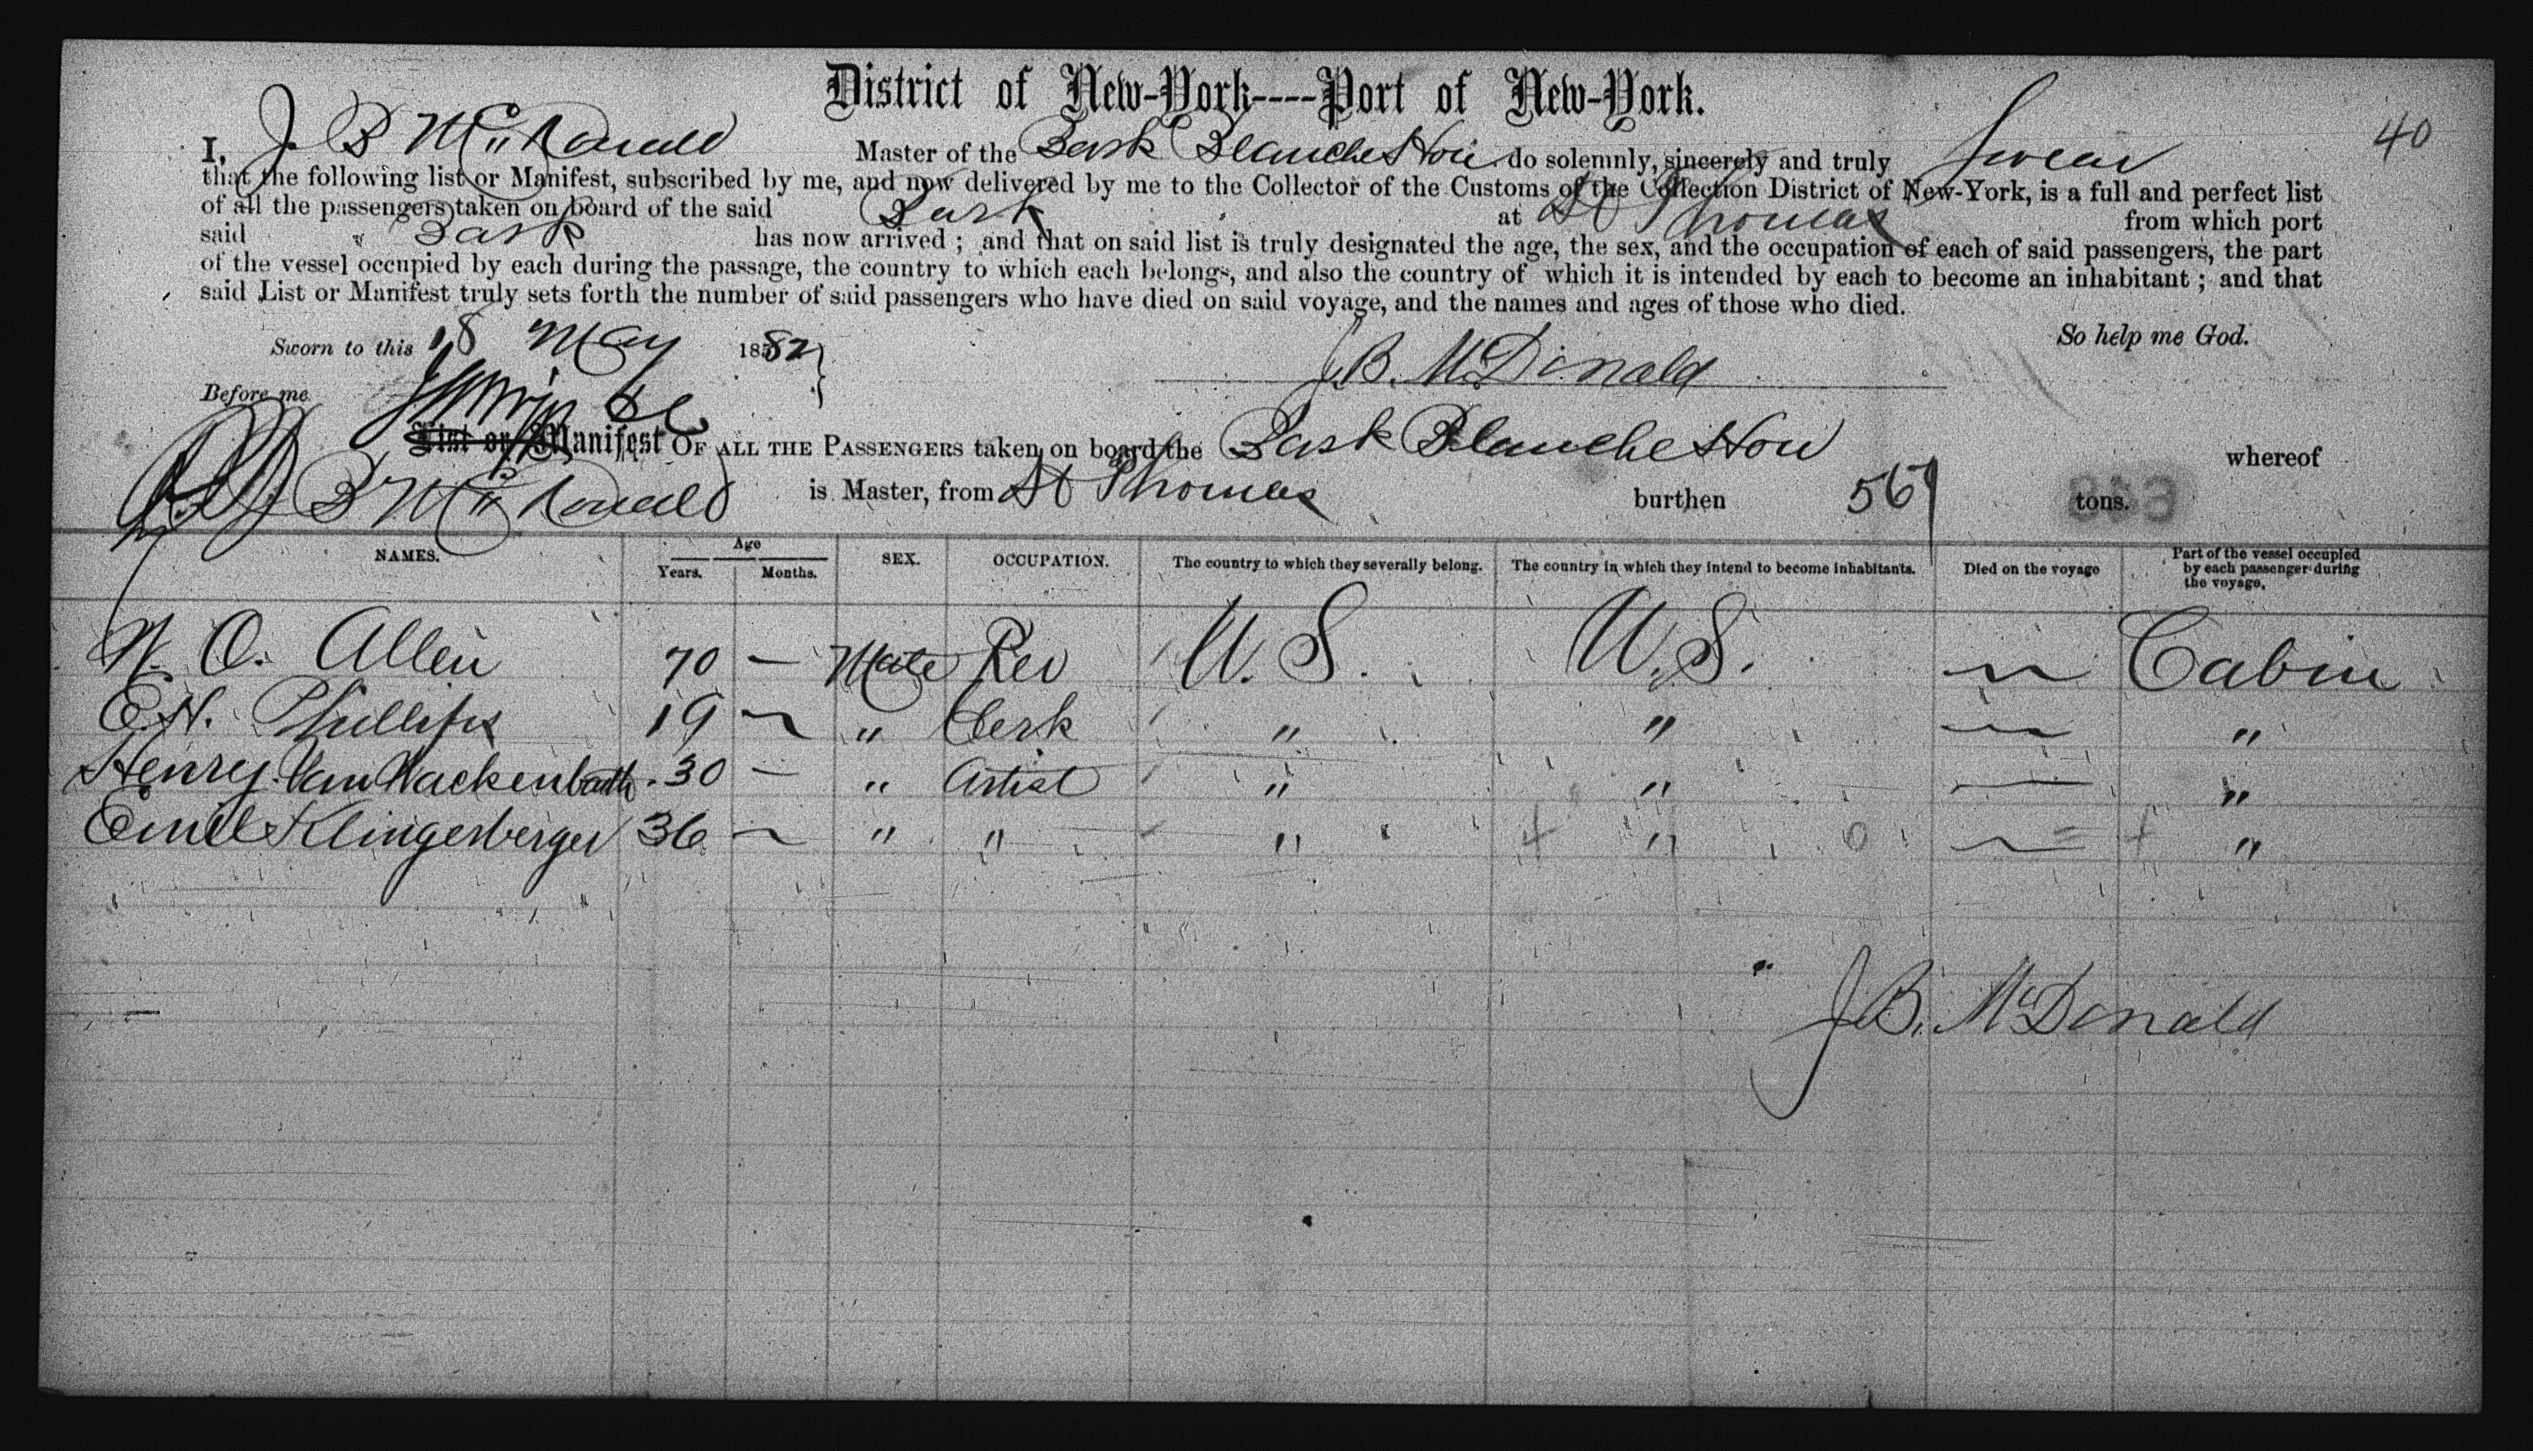 District of New-York----Port of New-York.
40
I, J. B McDonald Master of the Bark Blanche How do solemnly, sincerely and truly swear
that the following list or Manifest, subscribed by me, and now delivered by me to the Collector of the Customs of the Collection District of New-York, is a full and perfect list
of all the passengers taken on board of the said Bark at St Thomas from which port
said Bark has now arrived ; and that on said list is truly designated the age, the sex, and the occupation of each of said passengers, the part
of the vessel occupied by each during the passage, the country to which each belongs, and also the country of which it is intended by each to become an inhabitant ; and that
said List or Manifest truly sets forth the number of said passengers who have died on said voyage, and the names and ages of those who died.
So help me God.
Sworn to this 18 May 1882
J. B. McDonald
Before me
List or Manifest OF ALL THE PASSENGERS taken on board the Bark Blanche How whereof
B McDonald is Master, from St Thomas burthen 569 tons.
NAMES. Age Years. Months. SEX. OCCUPATION. The country to which they severally belong. The country in which they intend to become inhabitants. Died on the voyage Part of the vessel occupied by each passenger during the voyage.
N. O. Allen 70 — Male Rev U. S. U. S. — Cabin
E. H. Phillips 19 — " Clerk " " — "
Henry Van Wackenbarth 30 — " Artist " " — "
Emile Klingesberger 36 — " " " " — "
J. B. McDonald